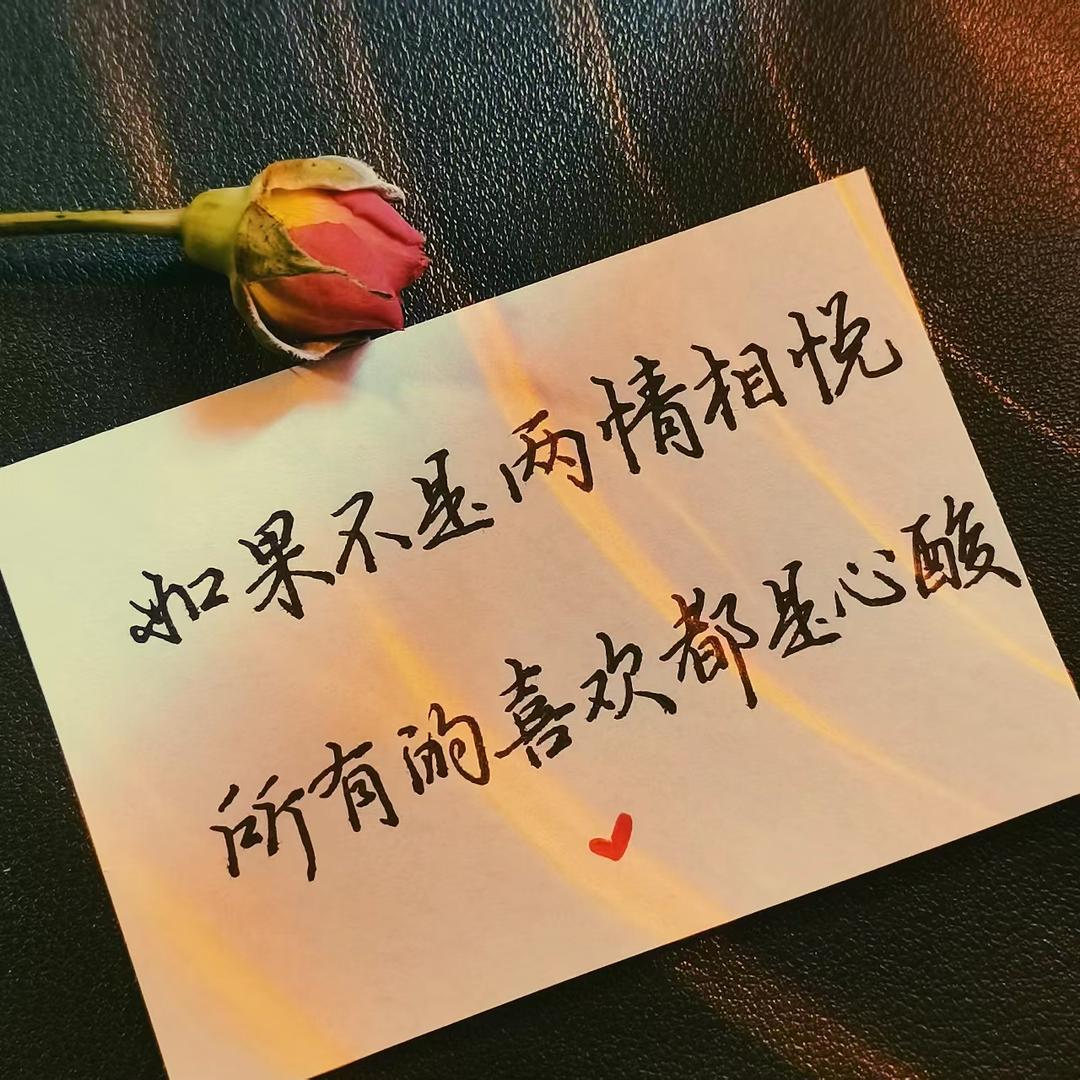 如果不是两情相悦
所有的喜欢都是心酸